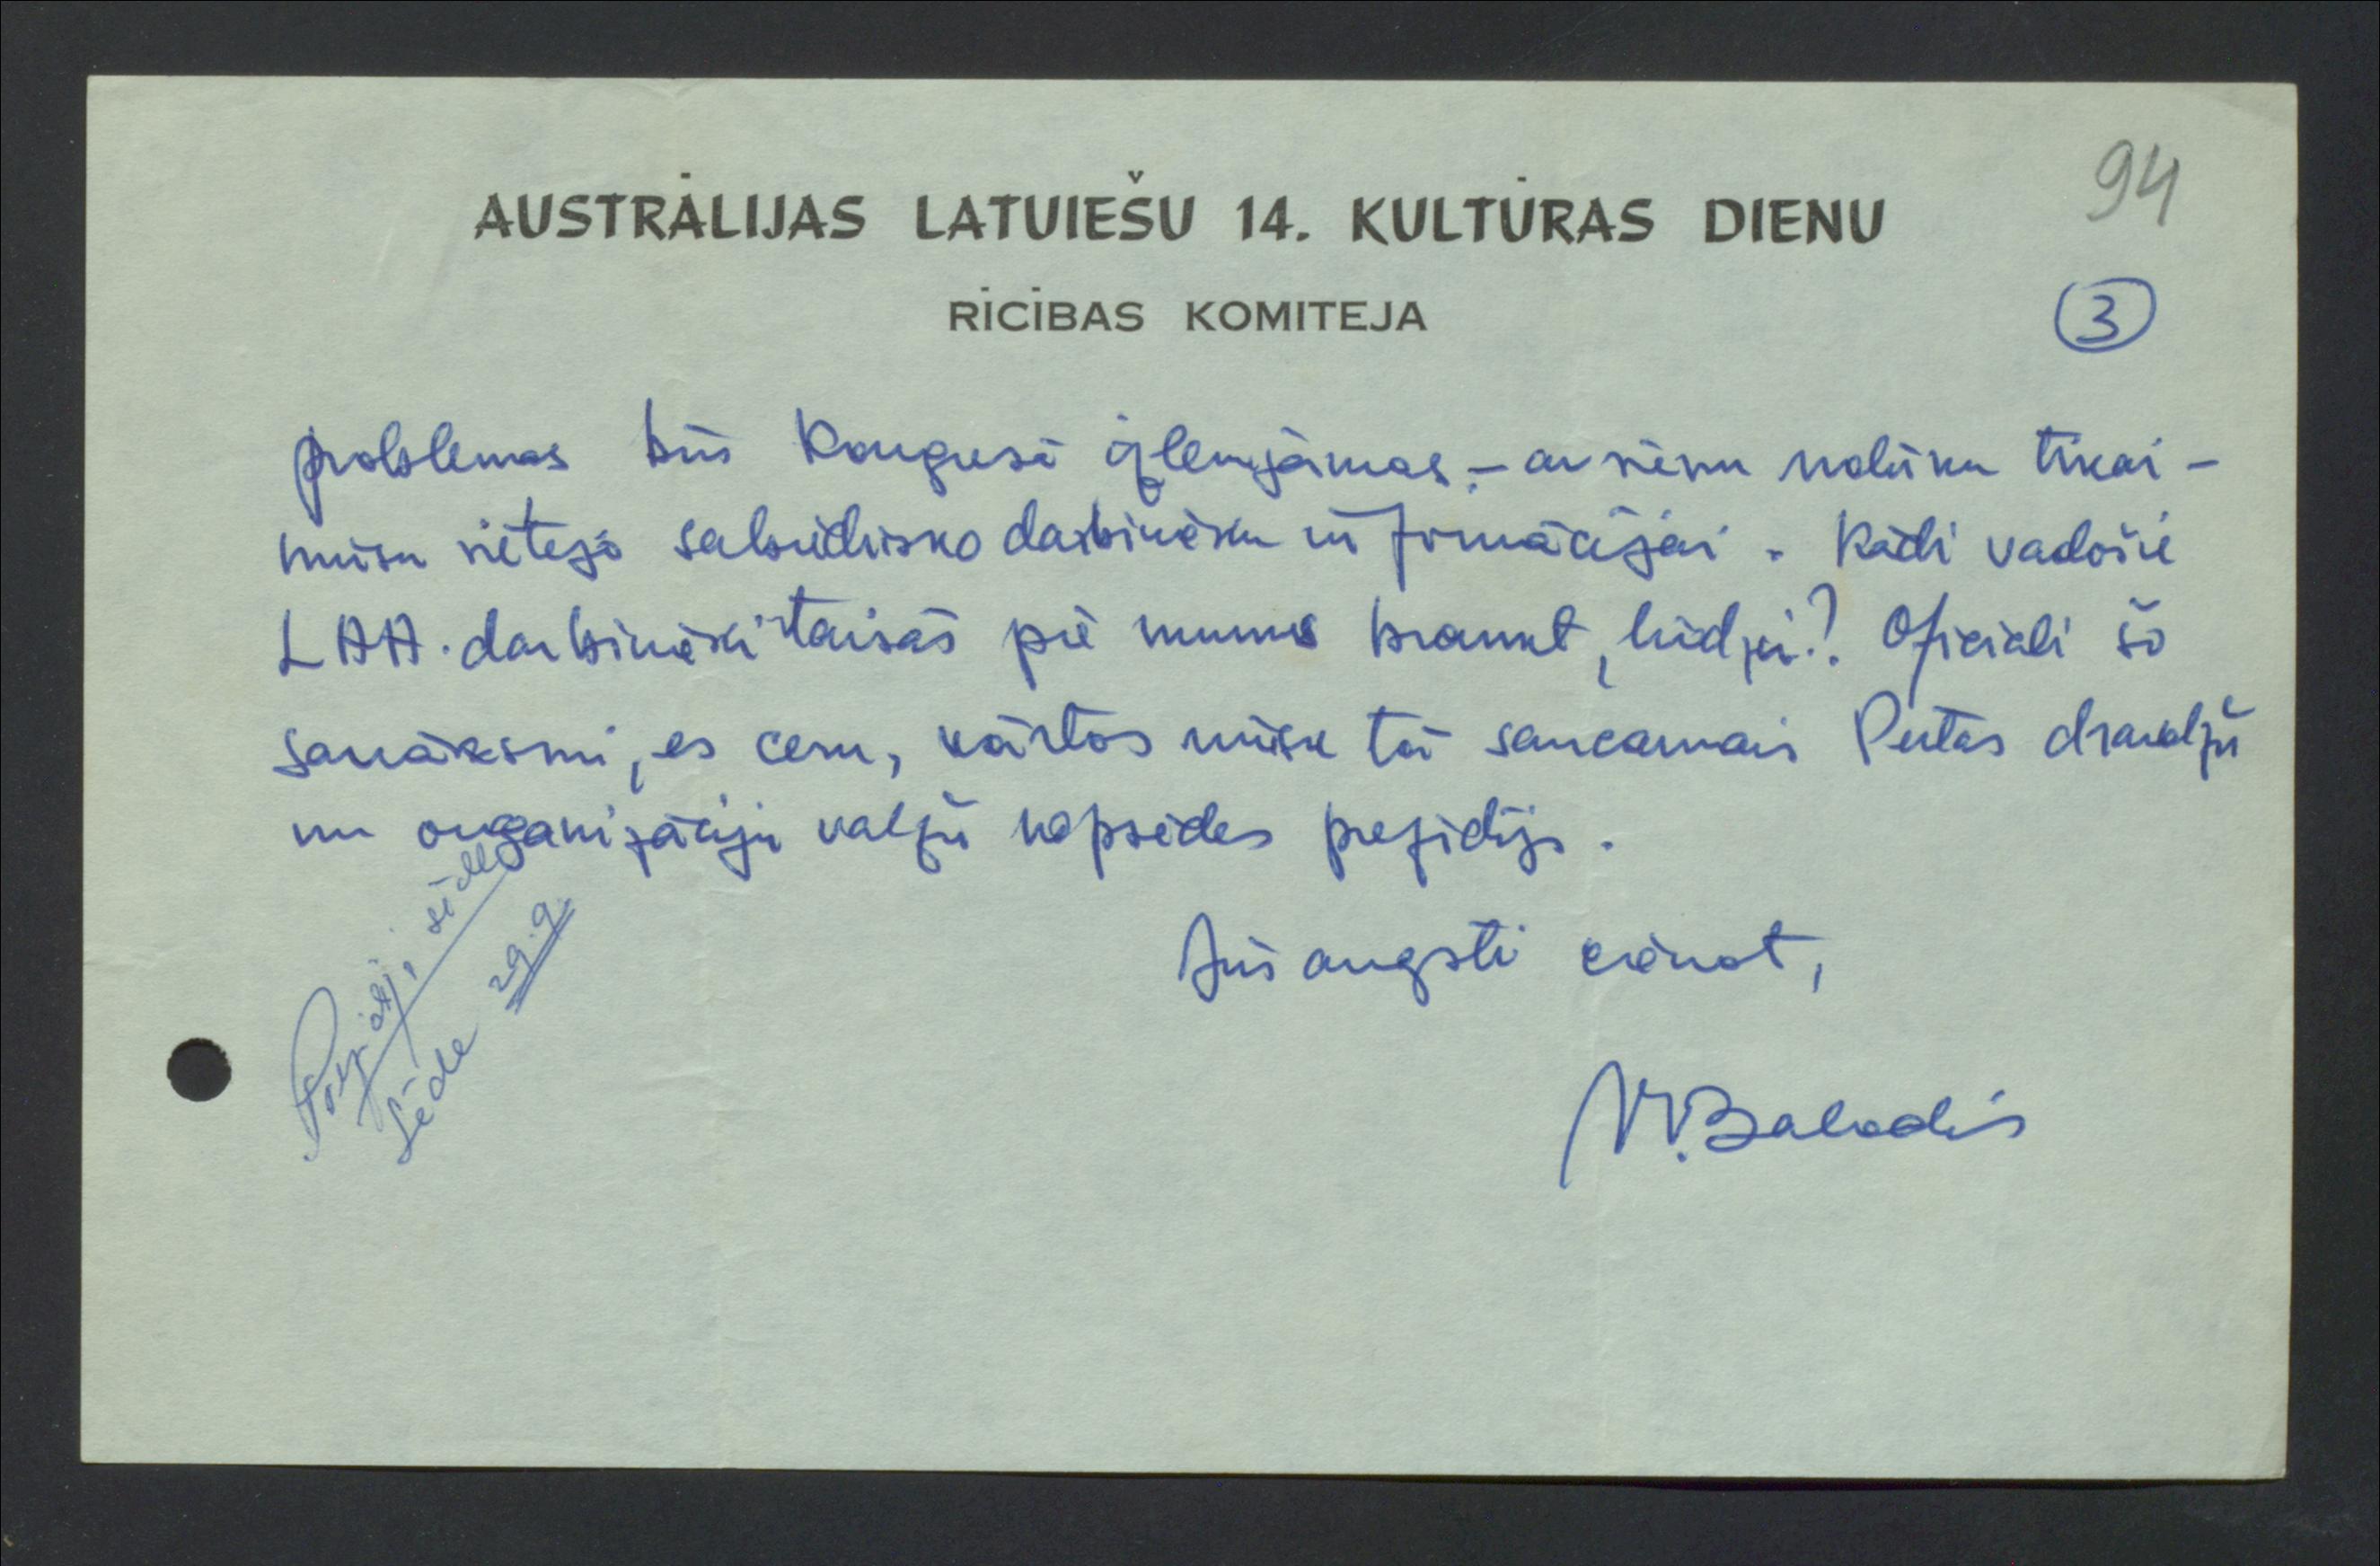 94
AUSTRĀLIJAS LATVIEŠU 14. KULTŪRAS DIENU
RĪCĪBAS KOMITEJA
3
problemas būs Kongresā izlemjamas, – ar vienu nolūku tikai –
mūsu vietējo sabiedrisko darbinieku informācijai. Kādi vadošie
LAA. darbinieki taisās pie mums braukt, lūdzu? Oficiali šo
sanāksmi, es ceru, kārtos mūsu tā saucamais Pertas draudžu
un organizāciju valžu kopsēdes prezidijs.
Jūs augsti cienot,
V. Balodis
sēdē
Sēde 29.9